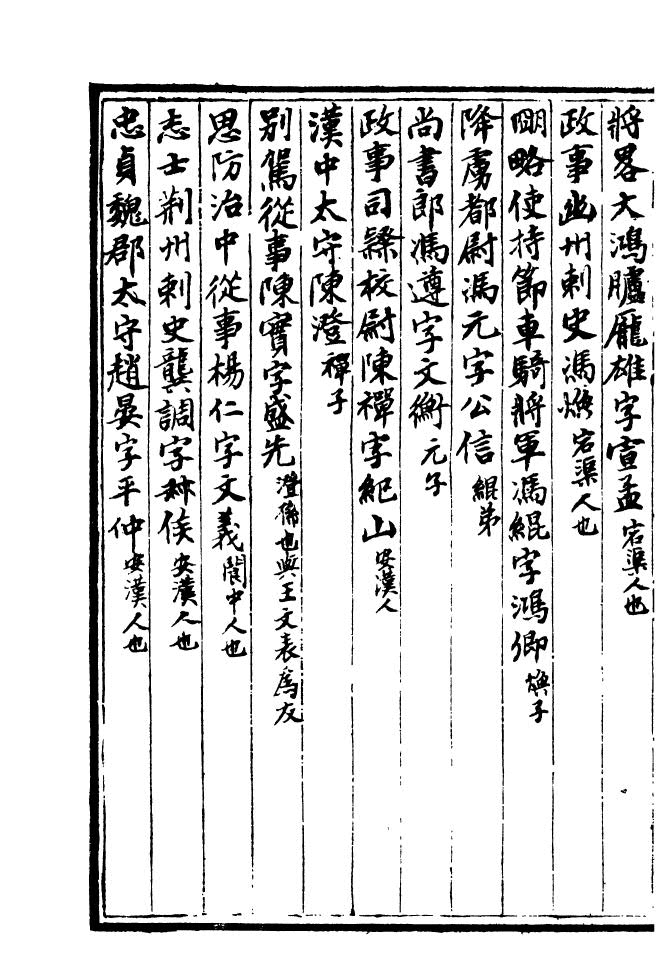 將畧大鴻臚龐雄字宣孟宕渠人也
政事幽州刺史馮煥宕渠人也
明略使持節車騎將軍馮緄字鴻卿煥子
降虜都尉馮元字公信緄弟
尚書郎馮遵字文衡元子
政事司隸校尉陳禪字紀山安漢人
漢中太守陳澄禪子
別駕從事陳實字盛先澄孫也與王文表爲友
思防治中從事楊仁字文義閬中人也
志士荆州刺史龔調字叔侯安漢人也
忠貞魏郡太守趙晏字平仲安漢人也